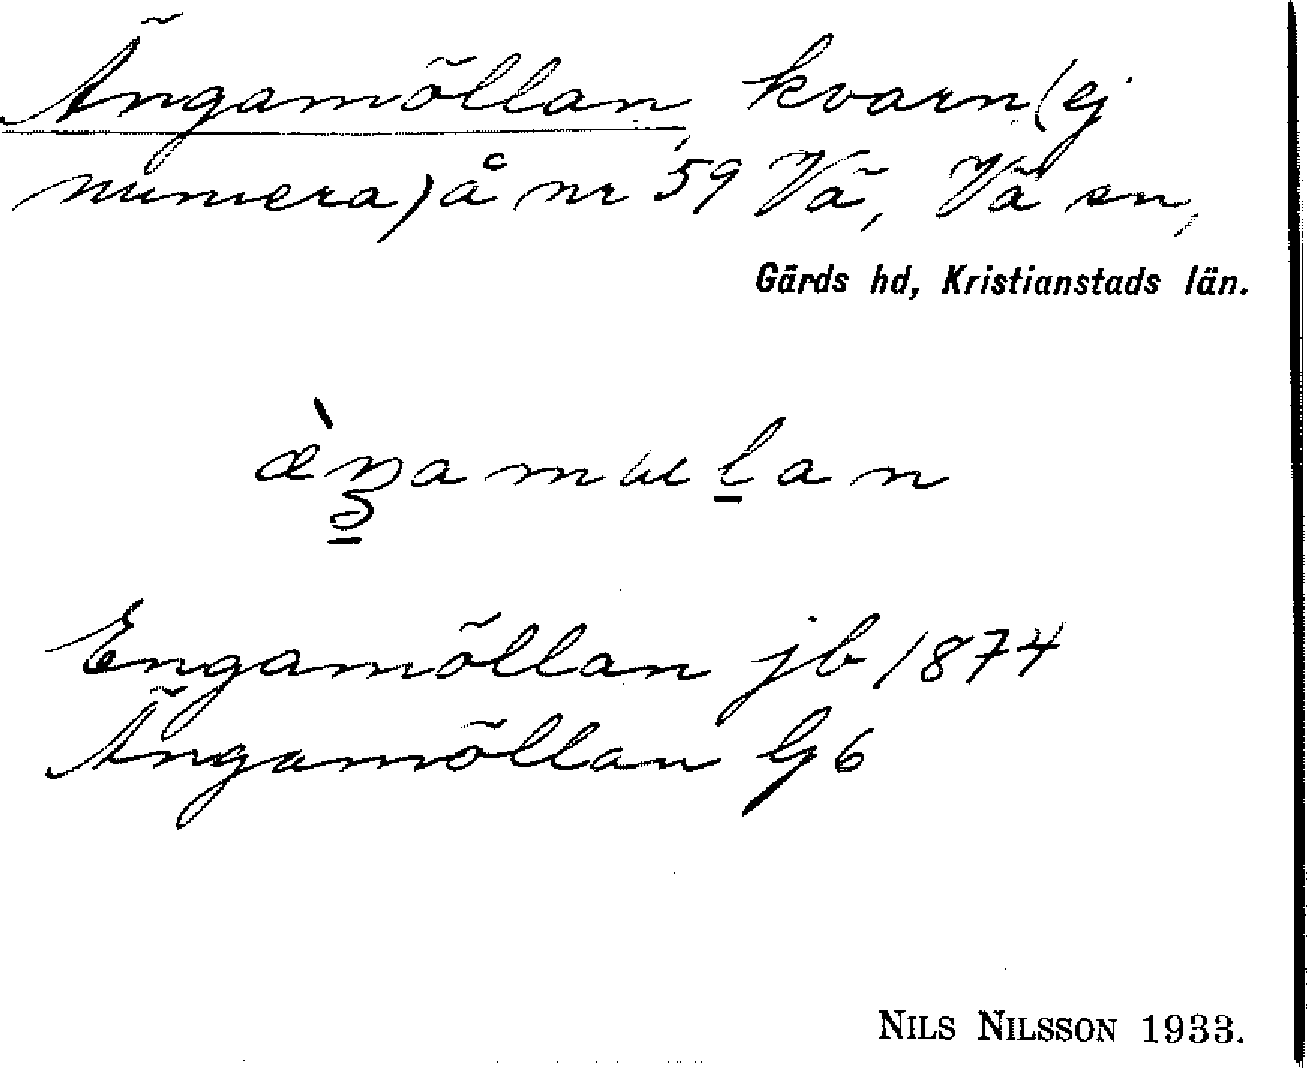 Ängamöllan, kvarn (ej
numera) å nr 59 Vä, Vä sn,
Gärds hd, Kristianstads län.
Engamöllan jb 1874
Ängamöllan G6
NILS NILSSON 1933.